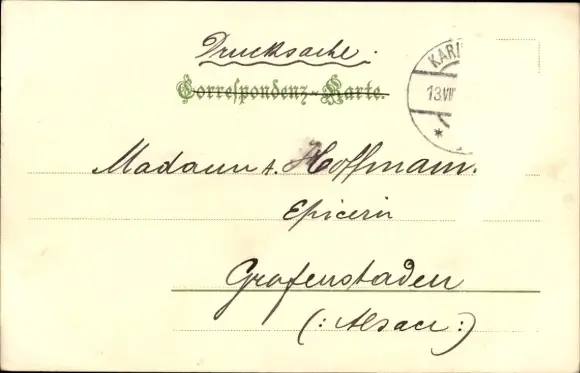 Drucksache.
Correspondenz-Karte.
KARL
13.VII
Madame A. Hoffmann.
Epicerie
Grafenstaden
(: Alsace :)